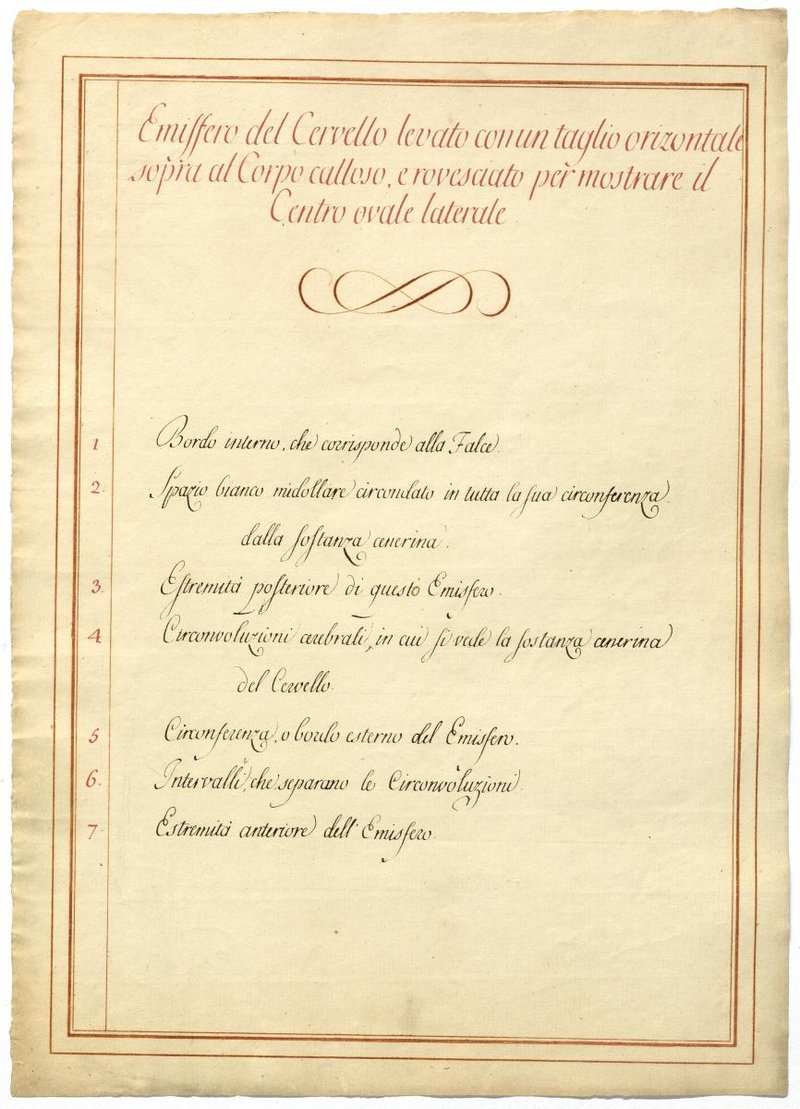 Emissero del Cervello levato con un taglio orizontale
sopra al Corpo calloso, e rovesciato per mostrare il
Centro ovale laterale
1 Bordo interno, che corrisponde alla Falce.
2 Spazio bianco midollare circondato in tutta la sua circonferenza
dalla sostanza cenerina.
3 Estremità posteriore di questo Emisfero.
4 Circonvoluzioni cerebrali, in cui si vede la sostanza cenerina
del Cervello.
5 Circonferenza, o bordo esterno del Emisfero.
6. Intervalli, che separano le Circonvoluzioni.
7 Estremità anteriore dell' Emisfero.